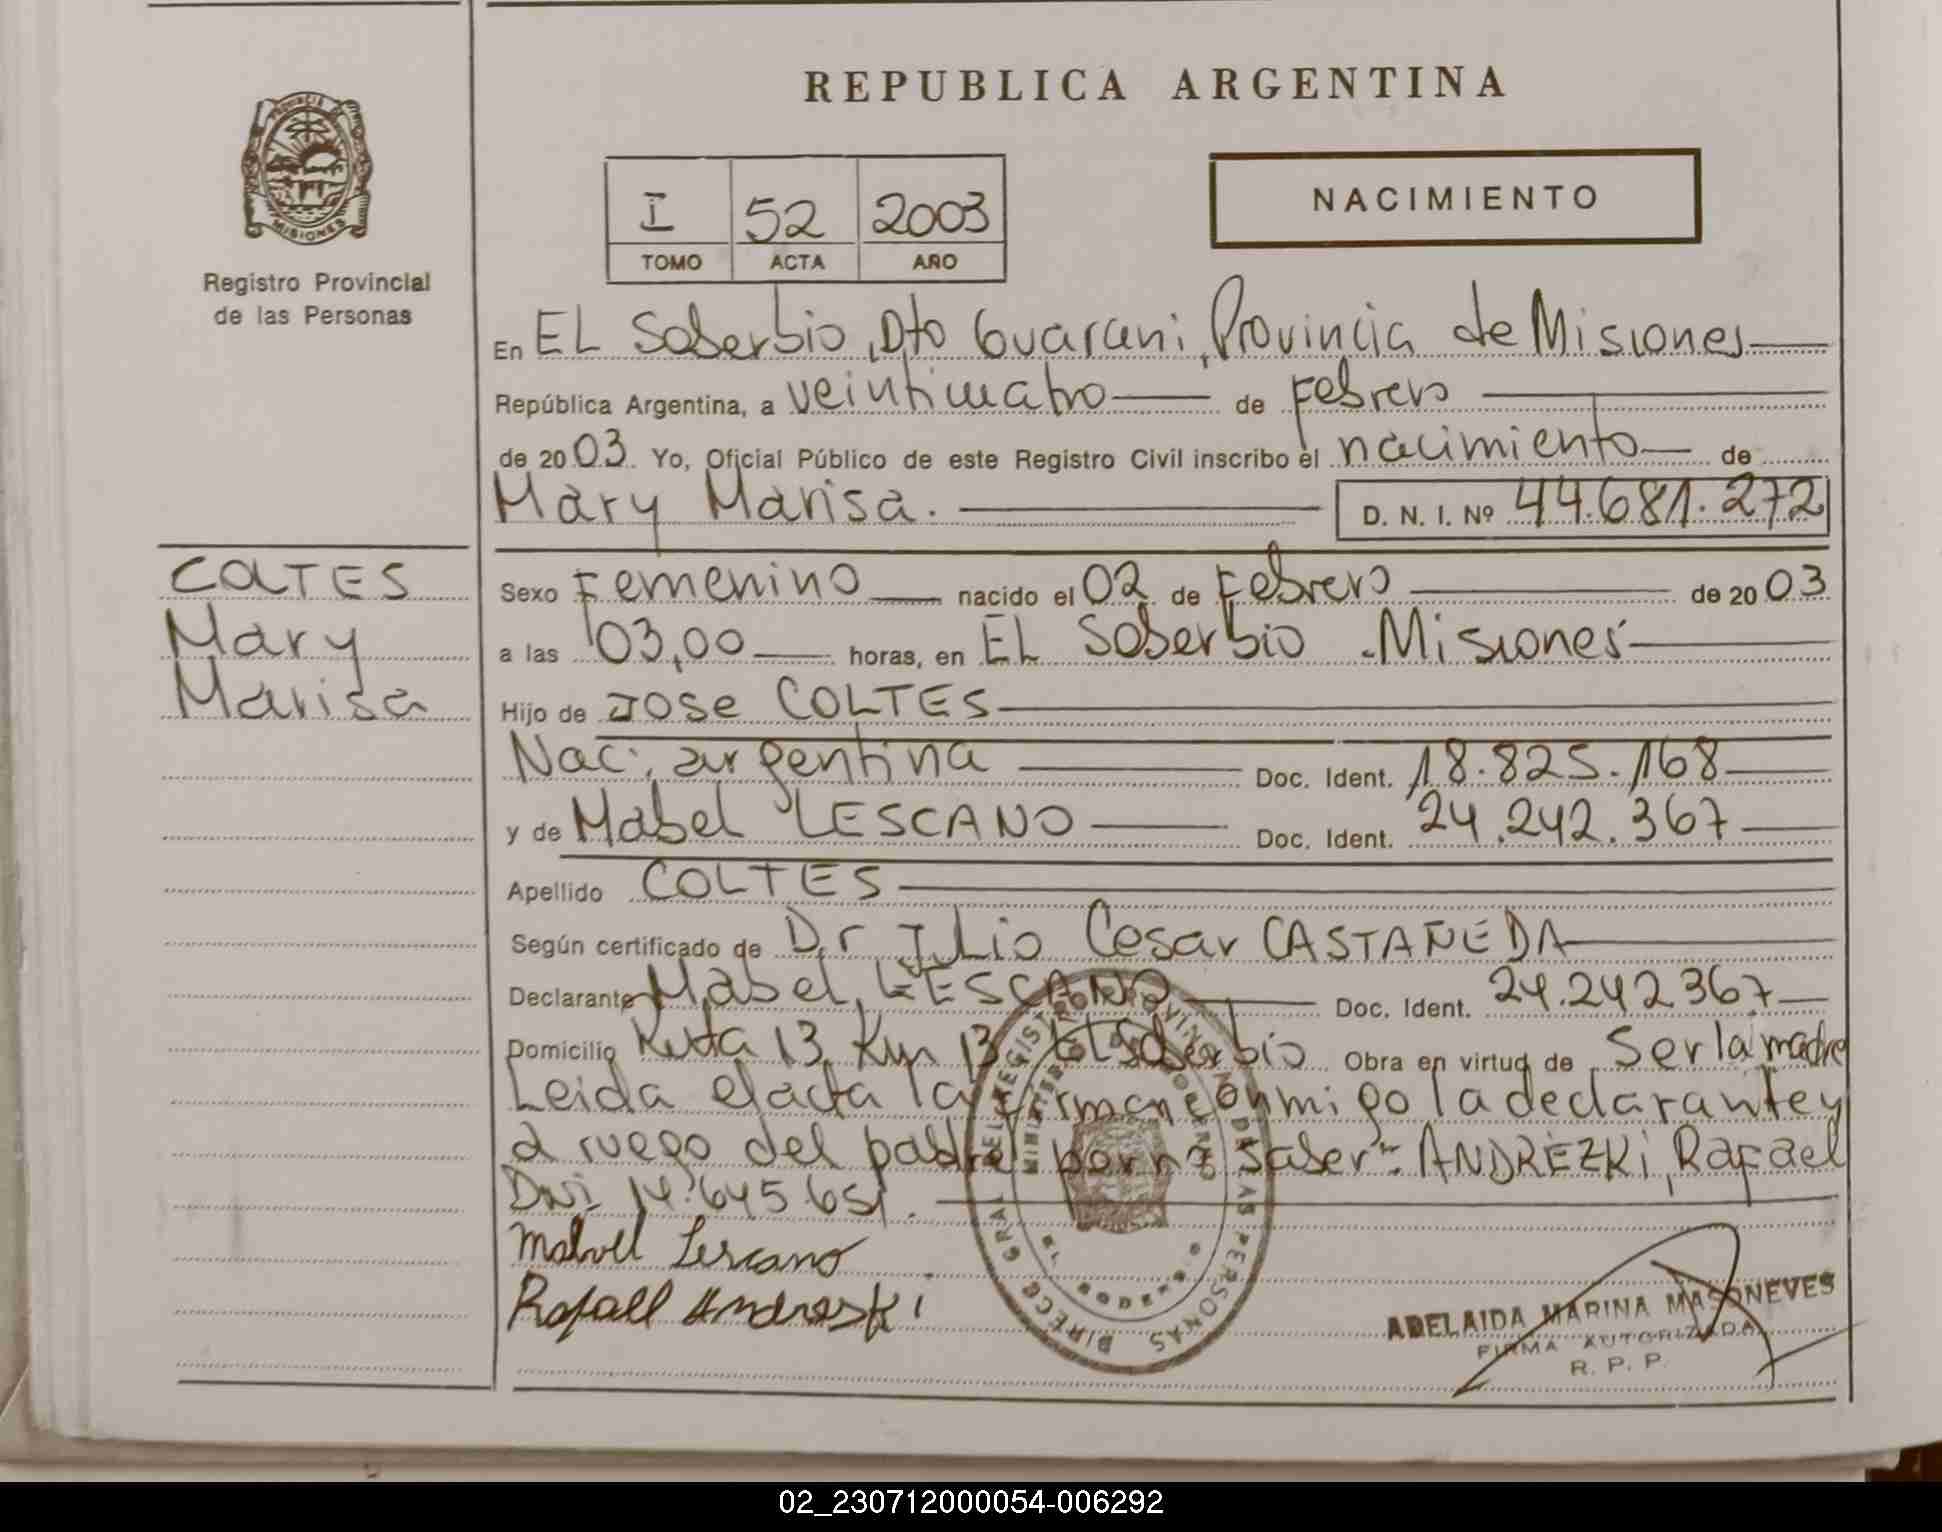 REPUBLICA ARGENTINA
PROVINCIA DE
MISIONES
Registro Provincial
de las Personas
I 52 2003
TOMO ACTA AÑO
NACIMIENTO
En EL Soberbio, Dto Guarani, Provincia de Misiones
República Argentina, a veinticuatro de Febrero
de 2003. Yo, Oficial Público de este Registro Civil inscribo el nacimiento de
Mary Marisa. D. N. I. Nº 44.681.272
COLTES
Mary
Marisa
Sexo Femenino nacido el 02 de Febrero de 2003
a las 03,00 horas, en EL Soberbio - Misiones
Hijo de JOSE COLTES
Nac: argentina Doc. Ident. 18.825.168
y de Mabel LESCANO Doc. Ident. 24.242.367
Apellido COLTES
Según certificado de Dr Julio Cesar CASTAÑEDA
Declarante Mabel LESCANO Doc. Ident. 24.242367
Domicilio Ruta 13 Km 13 El Soberbio Obra en virtud de Ser la madre
Leida el acta la firman conmigo la declarante y
a ruego del padre por no saber - ANDREZKi, Rafael
Dni 14.645.651.
Mabel Lescano
Rafael Andreski
ADELAIDA MARINA MASONEVES
FIRMA AUTORIZADA
R. P. P.
02_230712000054-006292